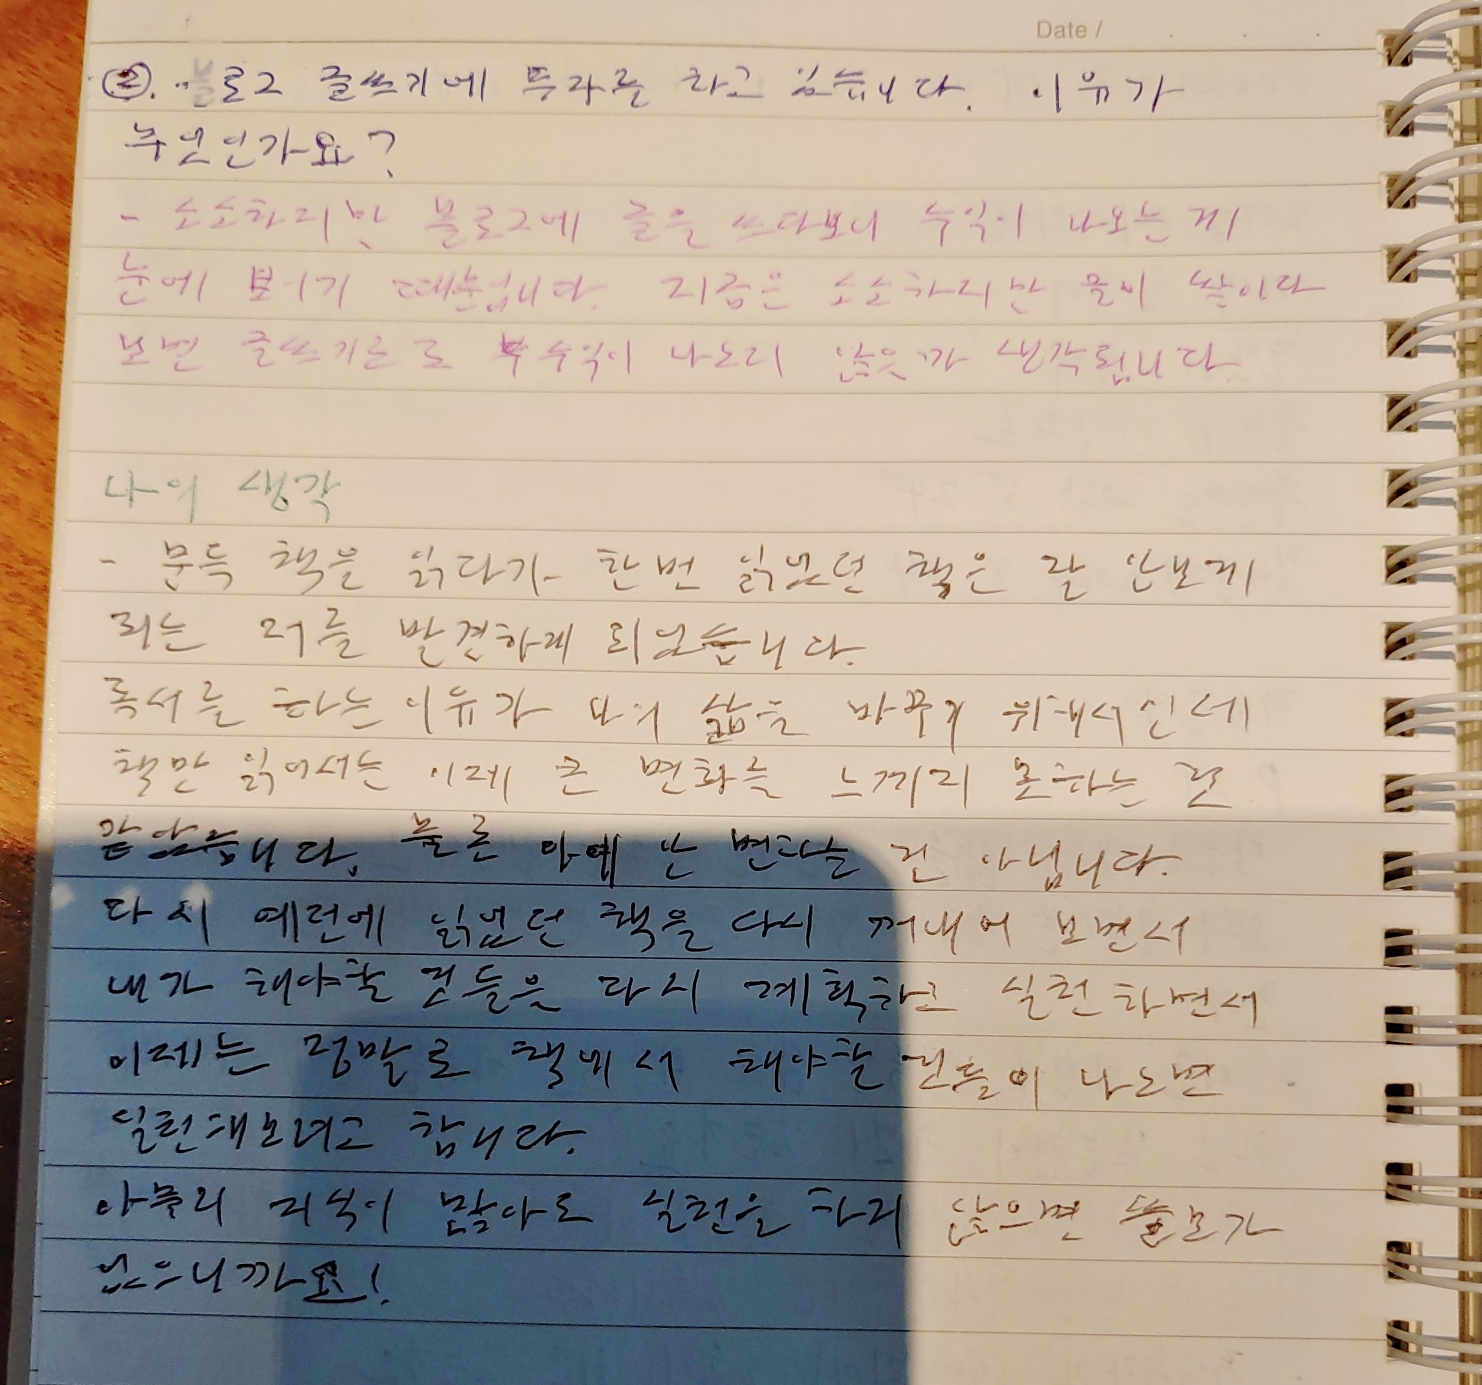 Date /
②. 블로그 글쓰기에 투자를 하고 있습니다. 이유가
무엇인가요?
- 소소하지만 블로그에 글을 쓰다보니 수익이 나오는게
눈에 보이기 때문입니다. 지금은 소소하지만 물이 쌓이다
보면 글쓰기로도 부수익이 나오지 않을까 생각됩니다
나의 생각
- 문득 책을 읽다가 한번 읽었던 책은 잘 안보게
되는 저를 발견하게 되었습니다.
독서를 하는 이유가 나의 삶을 바꾸기 위해서인데
책만 읽어서는 이제 큰 변화를 느끼지 못하는 것
같았습니다. 물론 아예 안 변하는 건 아닙니다.
다시 예전에 읽었던 책을 다시 꺼내어 보면서
내가 해야할 것들은 다시 계획하고 실천하면서
이제는 정말로 책에서 해야할 것들이 나오면
실천해보려고 합니다.
아무리 지식이 많아도 실천을 하지 않으면 쓸모가
없으니까요!